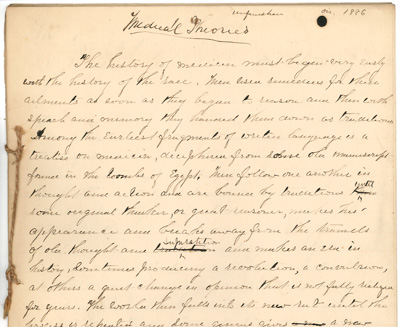 unfinished
Dec. 1886
Medical Theories
The history of medicine must begin very early
with the history of the race. Men used remedies for their
ailments as soon as they began to reason and then with
speech and memory they handed them down as traditions
Among the earliest fragments of written language is a
treatise on medicine, deciphered from some old manuscript
found in the tombs of Egypt. Men follow one another in
thought and action and are bound by traditions until
some original thinker, or great reasoner, makes his
appearance and breaks away from the trammels
of old thought and superstition and makes an era in
history, sometimes producing a revolution, a convulsion,
at others a quiet change in opinion that is not fully realized
for years. The world then falls into its new rut until the
process is repeated and some genius gives a new